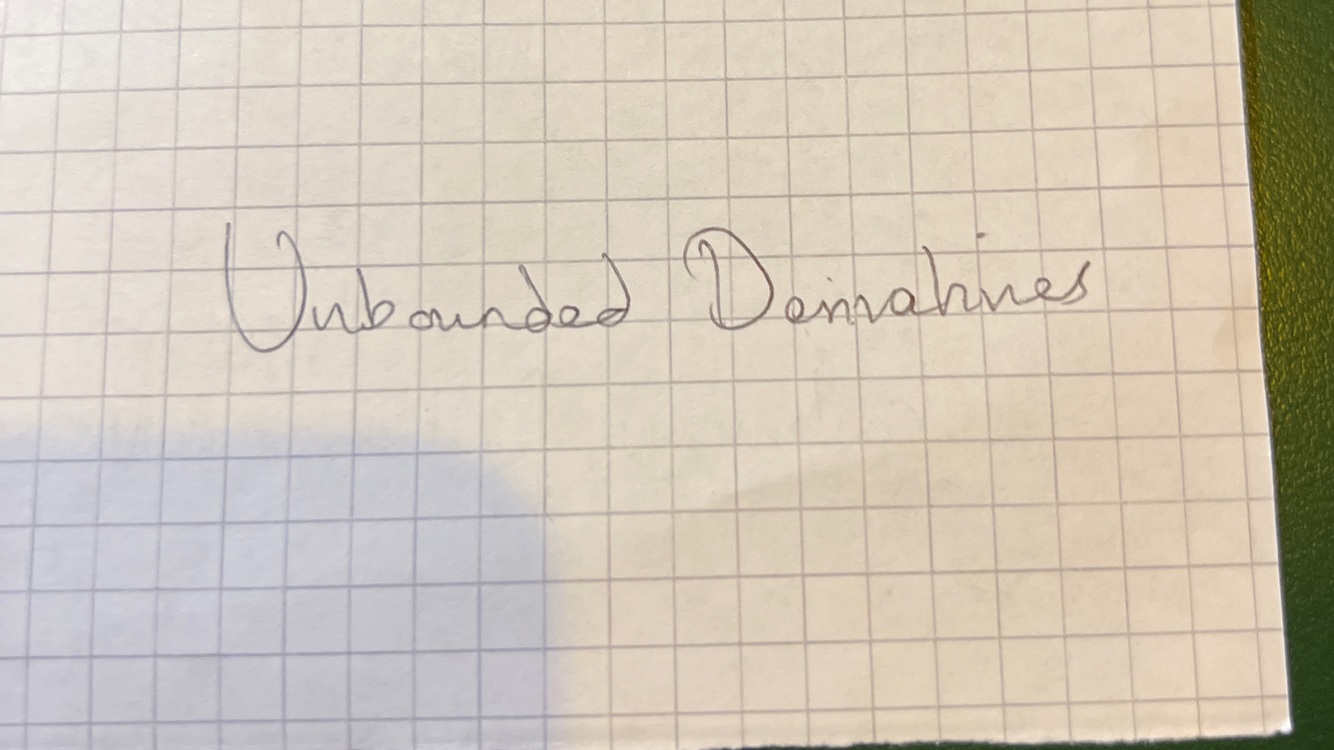 Unbounded Derivatives